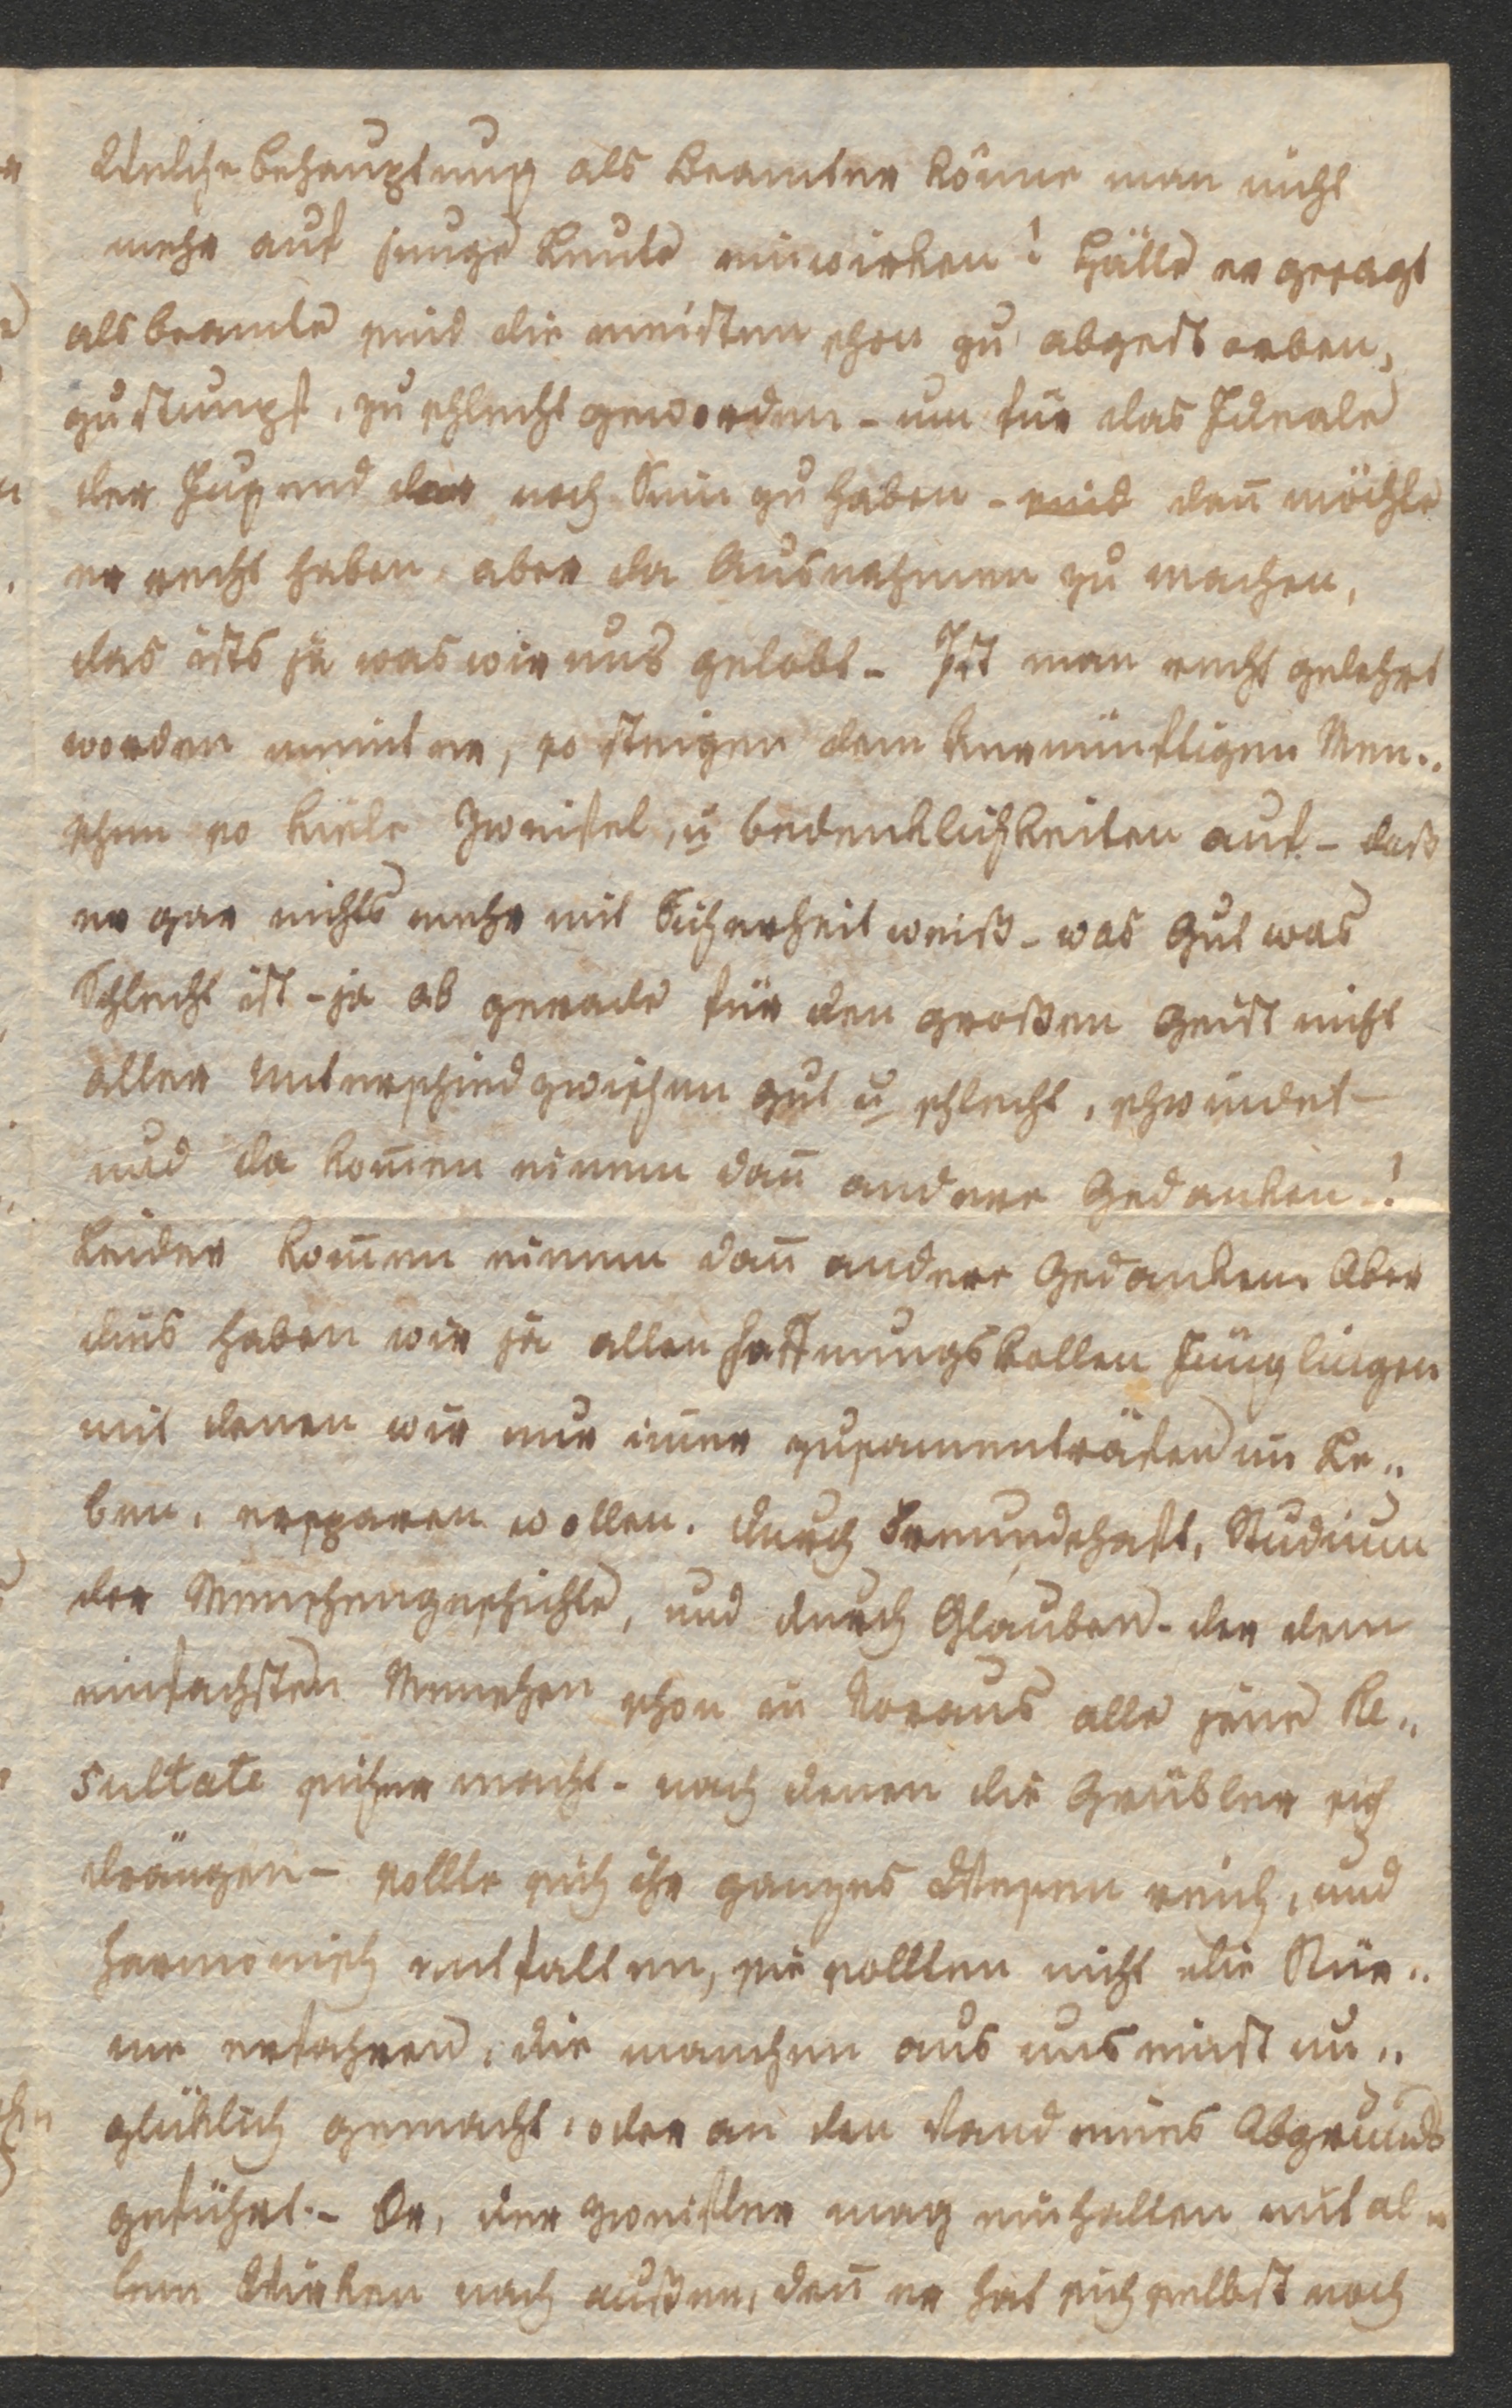 Welche Behauptung als Beamter köne man nicht
mehr auf junge Leute einwirken! Hätte er gesagt
als Beamte sind die meisten schon zu abgestorben,
zu stumpf, zu schlecht geworden - um für das Ideale
der Jugend noch Sinn zu haben - sind dañ möchte
er recht haben, aber da Ausnahmen zu machen,
das ists ja was wir uns gelobt - Ist man recht gelehrt
worden meint er, so steigen dem Vernünftigen Men„
schen so viele Zweifel, u Bedenklichkeiten auf - daß
er gar nichts mehr mit Sicherheit weiß - was Gut was
Schlecht ist - ja ob gerade für den großen Geist nicht
aller Unterschied zwischen gut u schlecht, schwindet -
und da kom̄en einem dañ andere Gedanken -!
Leider kom̄en einem dañ andere Gedanken. Aber
dies haben wir ja allen hoffnungsvollen Jünglingen
mit denen wir nur im̄er zusamenträfen im Le„
ben, ersparen wollen. durch Freundschaft, Studium
der Menschengeschichte, und durch Glauben - der dem
einfachsten Menschen schon in Voraus alle jene Re„
sultate sicher macht - nach denen die Grübler sich
drängen - sollte sich ihr ganzes Wesen reich, und
harmonisch entfalten, sie sollten nicht die Stür„
me erfahren, die manchen aus uns einst un„
glüklich gemacht, oder an den Rand eines Abgrunds
geführt. - Er, der Zweifler mag einhalten mit al„
lem Wirken nach außen, deñ er hat sich selbst noch